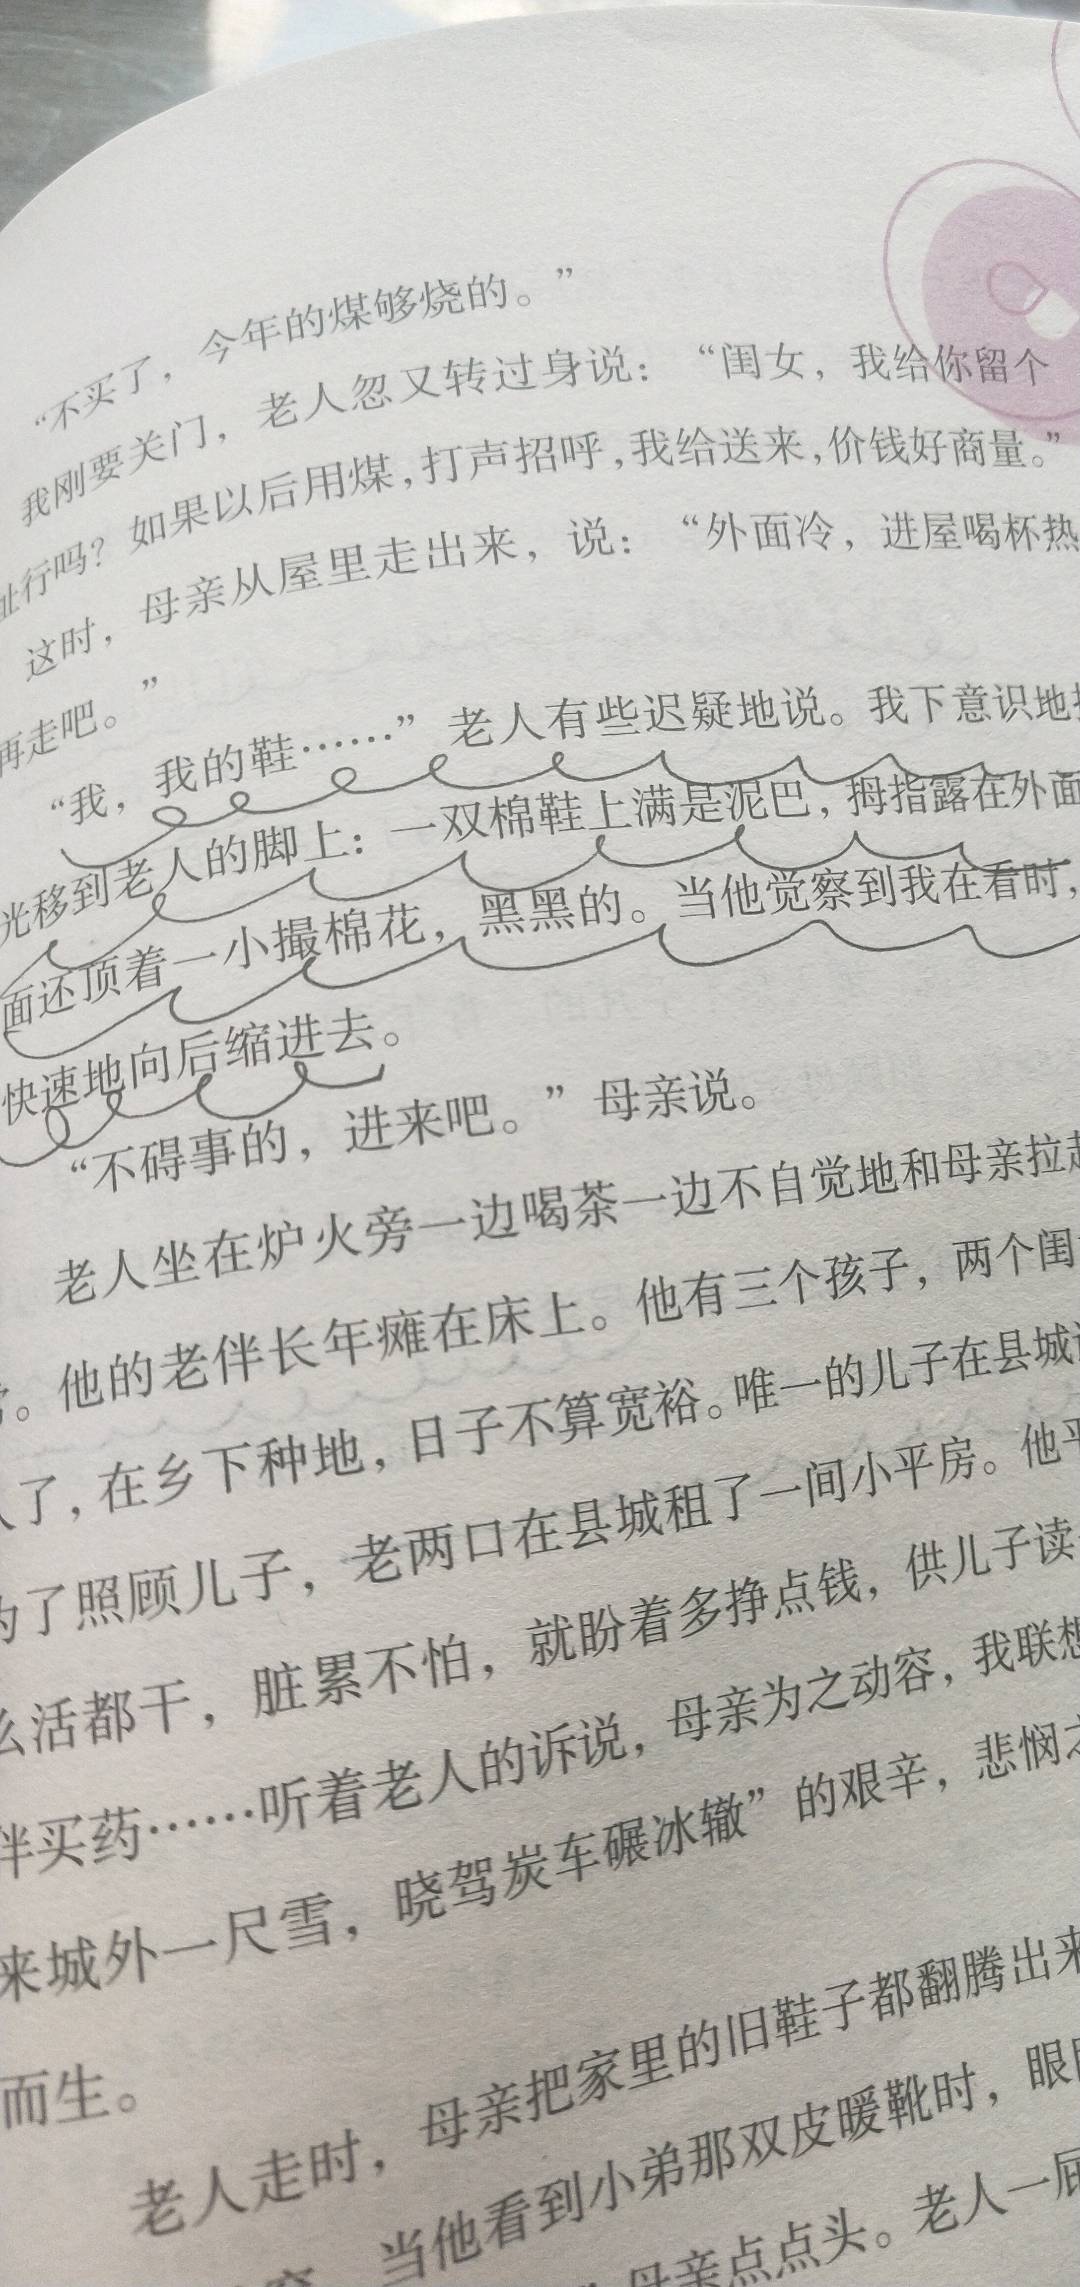 “不买了，今年的煤够烧的。”
我刚要关门，老人忽又转过身说：“闺女，我给你留个
址行吗？如果以后用煤，打声招呼，我给送来，价钱好商量。”
这时，母亲从屋里走出来，说：“外面冷，进屋喝杯热
再走吧。”
“我，我的鞋……”老人有些迟疑地说。我下意识地
光移到老人的脚上：一双棉鞋上满是泥巴，拇指露在外面
面还顶着一小撮棉花，黑黑的。当他觉察到我在看时，
快速地向后缩进去。
“不碍事的，进来吧。”母亲说。
老人坐在炉火旁一边喝茶一边不自觉地和母亲拉起
。他的老伴长年瘫在床上。他有三个孩子，两个闺
了，在乡下种地，日子不算宽裕。唯一的儿子在县城
为了照顾儿子，老两口在县城租了一间小平房。他平
么活都干，脏累不怕，就盼着多挣点钱，供儿子读
伴买药……听着老人的诉说，母亲为之动容，我联想
来城外一尺雪，晓驾炭车碾冰辙”的艰辛，悲悯之
而生。
老人走时，母亲把家里的旧鞋子都翻腾出来
当他看到小弟那双皮暖靴时，眼
母亲点点头。老人一屁